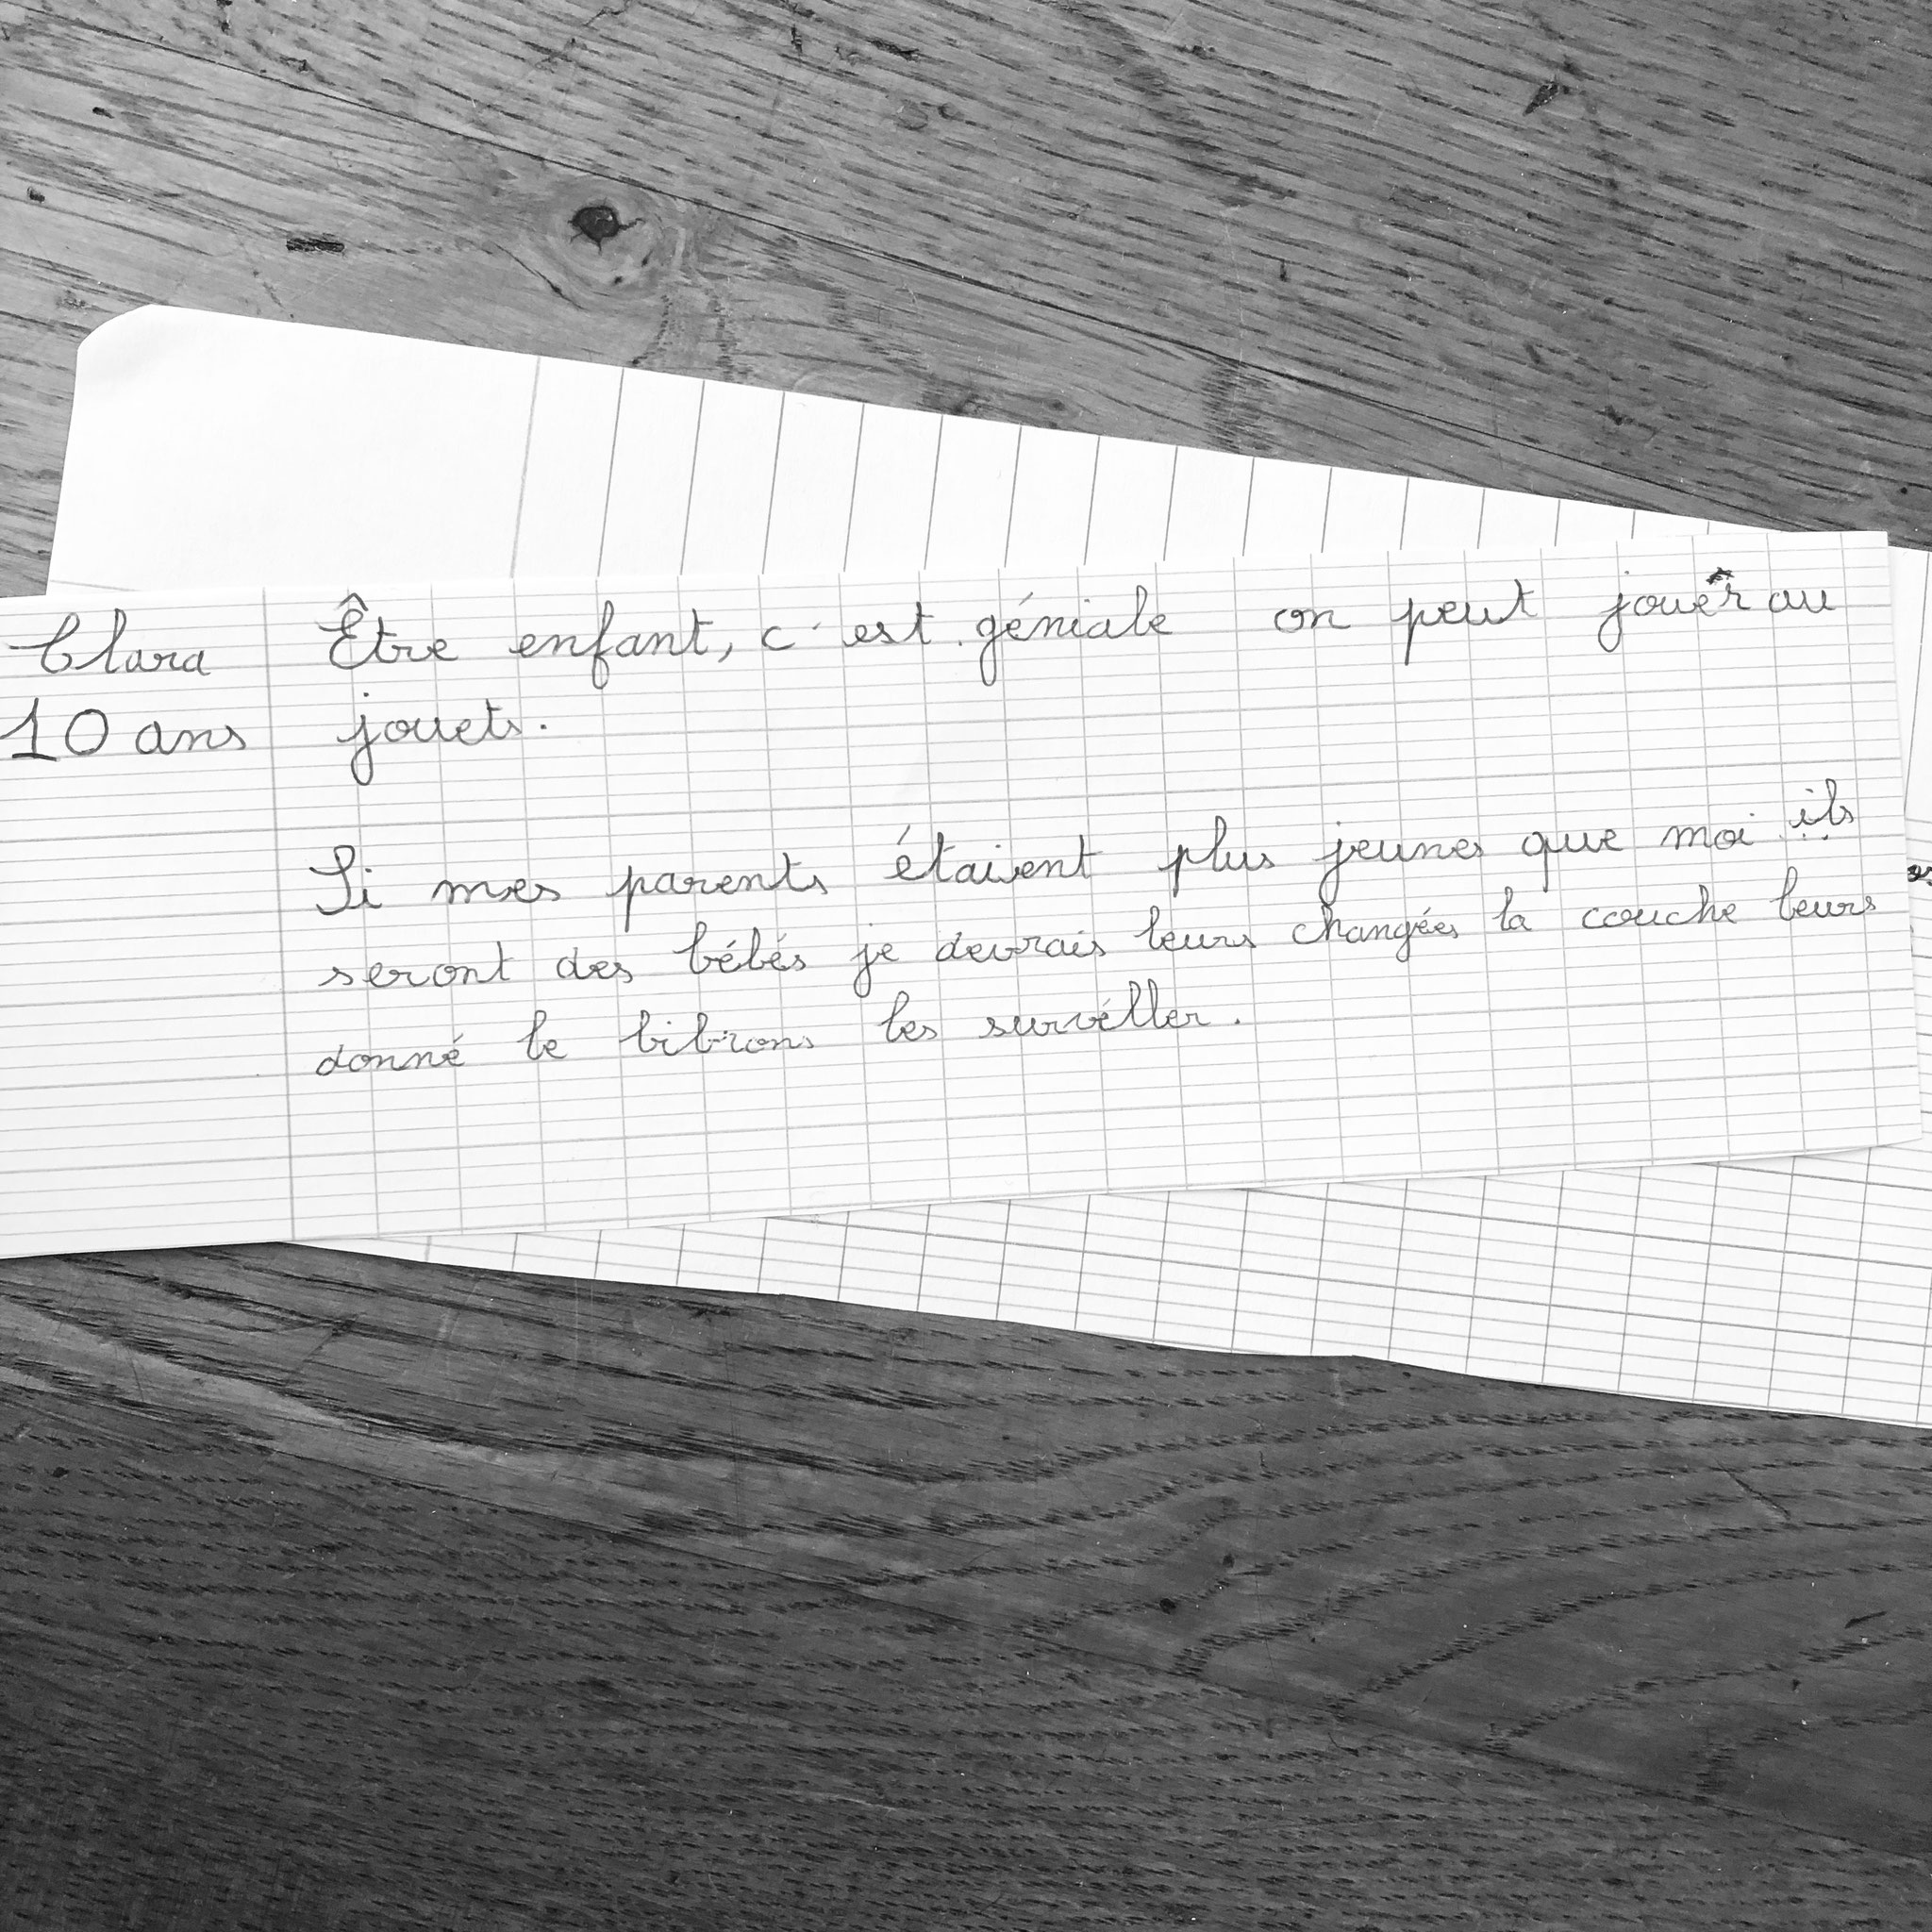 Clara
10 ans
Être enfant, c'est géniale on peut jouer au
jouets.
Si mes parents étaient plus jeunes que moi ils
seront des bébés je devrais leurs changées la couche leurs
donné le bibrons les surveller.